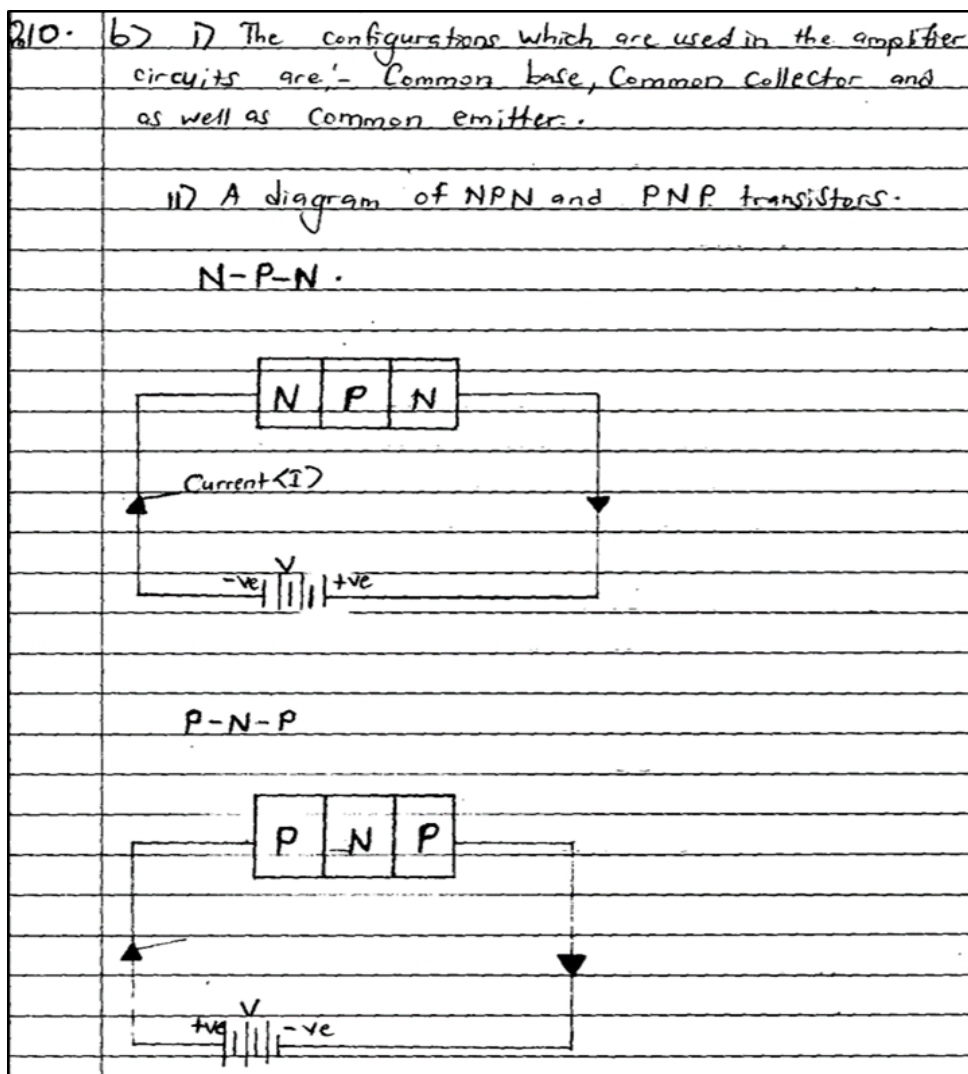 210. b> i) The configurations which are used in the amplifier
circuits are:- Common base, Common collector and
as well as Common emitter.
ii) A diagram of NPN and PNP transistors.
N-P-N.
N P N
Current <I>
V
-ve +ve
P-N-P
P N P
V
+ve -ve